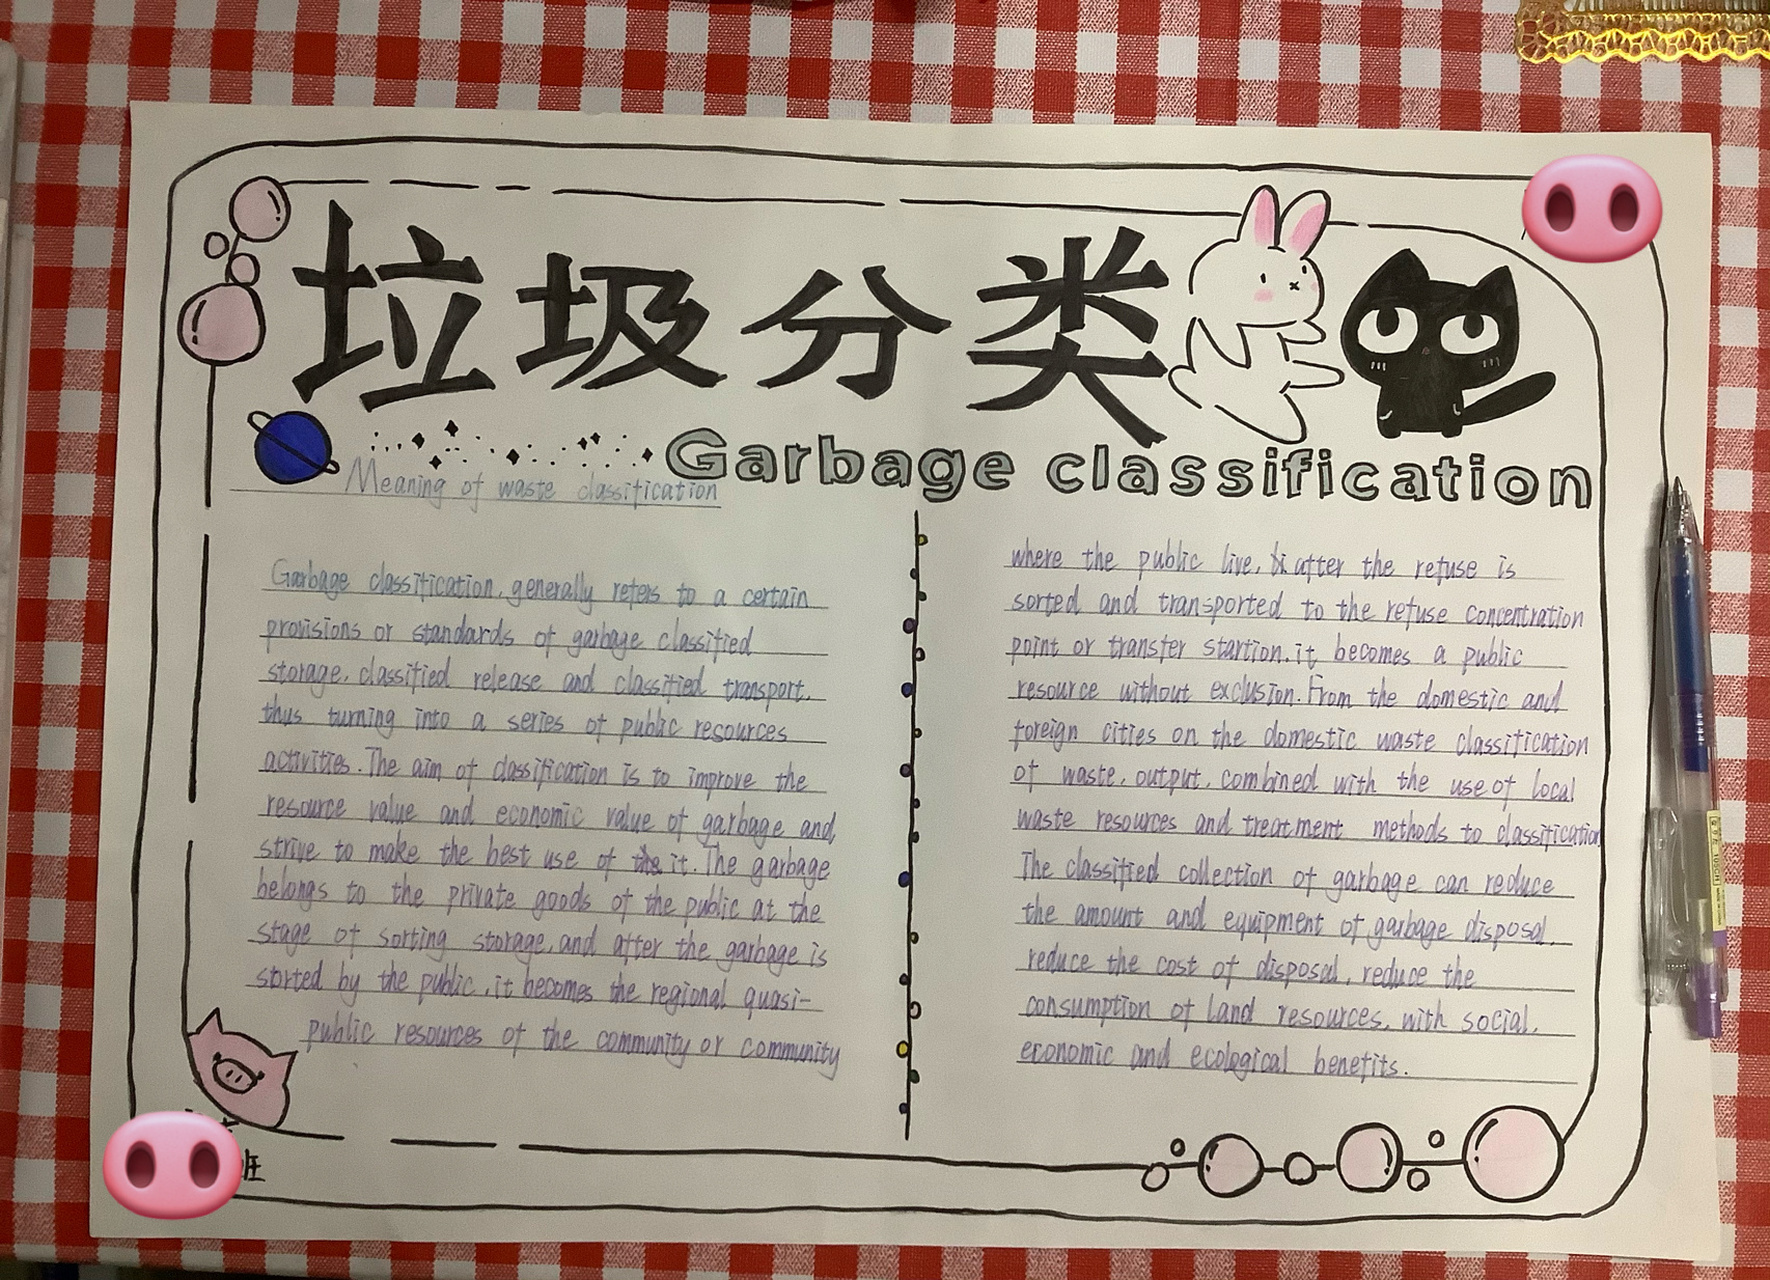 垃圾分类
Garbage classification
Meaning of waste classification
Garbage classification, generally refers to a certain
provisions or standards of garbage classified
storage, classified release and classified transport,
thus turning into a series of public resources
activities. The aim of classification is to improve the
resource value and economic value of garbage and
strive to make the best use of it. The garbage
belongs to the private goods of the public at the
stage of sorting storage, and after the garbage is
storted by the public, it becomes the regional quasi-
public resources of the community or community
where the public live, after the refuse is
sorted and transported to the refuse concentration
point or transfer startion, it becomes a public
resource without exclusion. From the domestic and
foreign cities on the domestic waste classification
of waste, output, combined with the use of local
waste resources and treatment methods to classification
The classified collection of garbage can reduce
the amount and equipment of garbage disposal,
reduce the cost of disposal, reduce the
consumption of land resources, with social,
economic and ecological benefits.
班